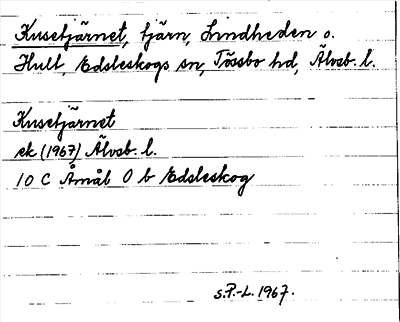 Kusetjärnet, tjärn, Lindheden o.
Hult, Edsleskogs sn, Tössbo hd, Älvsb. l.
Kusetjärnet
ek (1967) Älvsb. l.
10 C Åmål O b Edsleskog
s.P.-L. 1967.